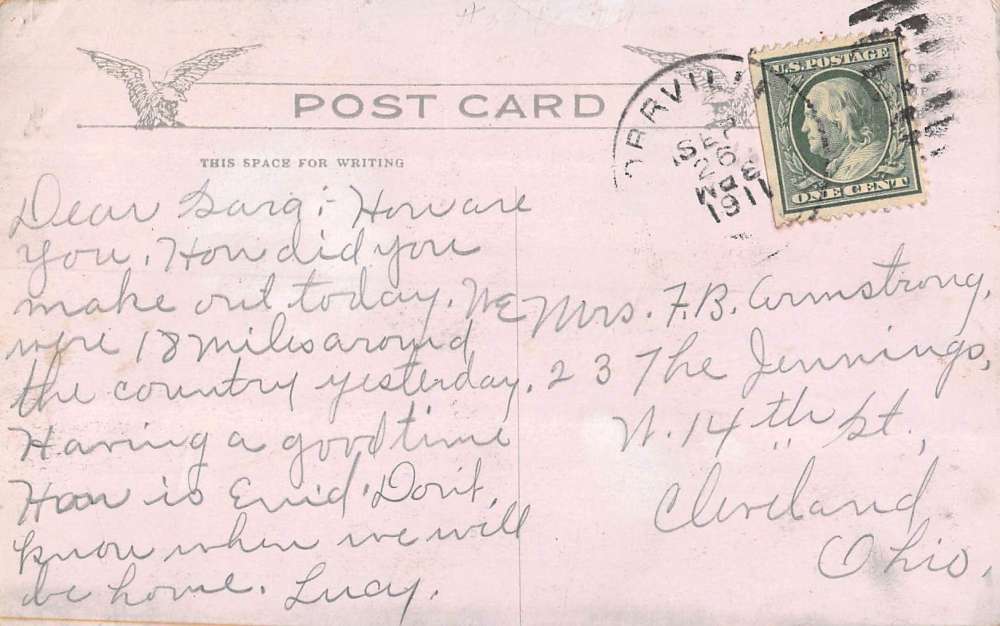 POST CARD
THIS SPACE FOR WRITING
ORRVILL
SEP
26
1911
U.S. POSTAGE
ONE CENT
Dear Sarg:- How are
you. How did you
make out today. We
were 18 miles around
the country yesterday.
Having a good time
How is Enid. Don't
know when we will
be home. Lucy.
Mrs. F.B. Armstrong,
23 The Jennings,
W. 14th St.,
Cleveland
Ohio.